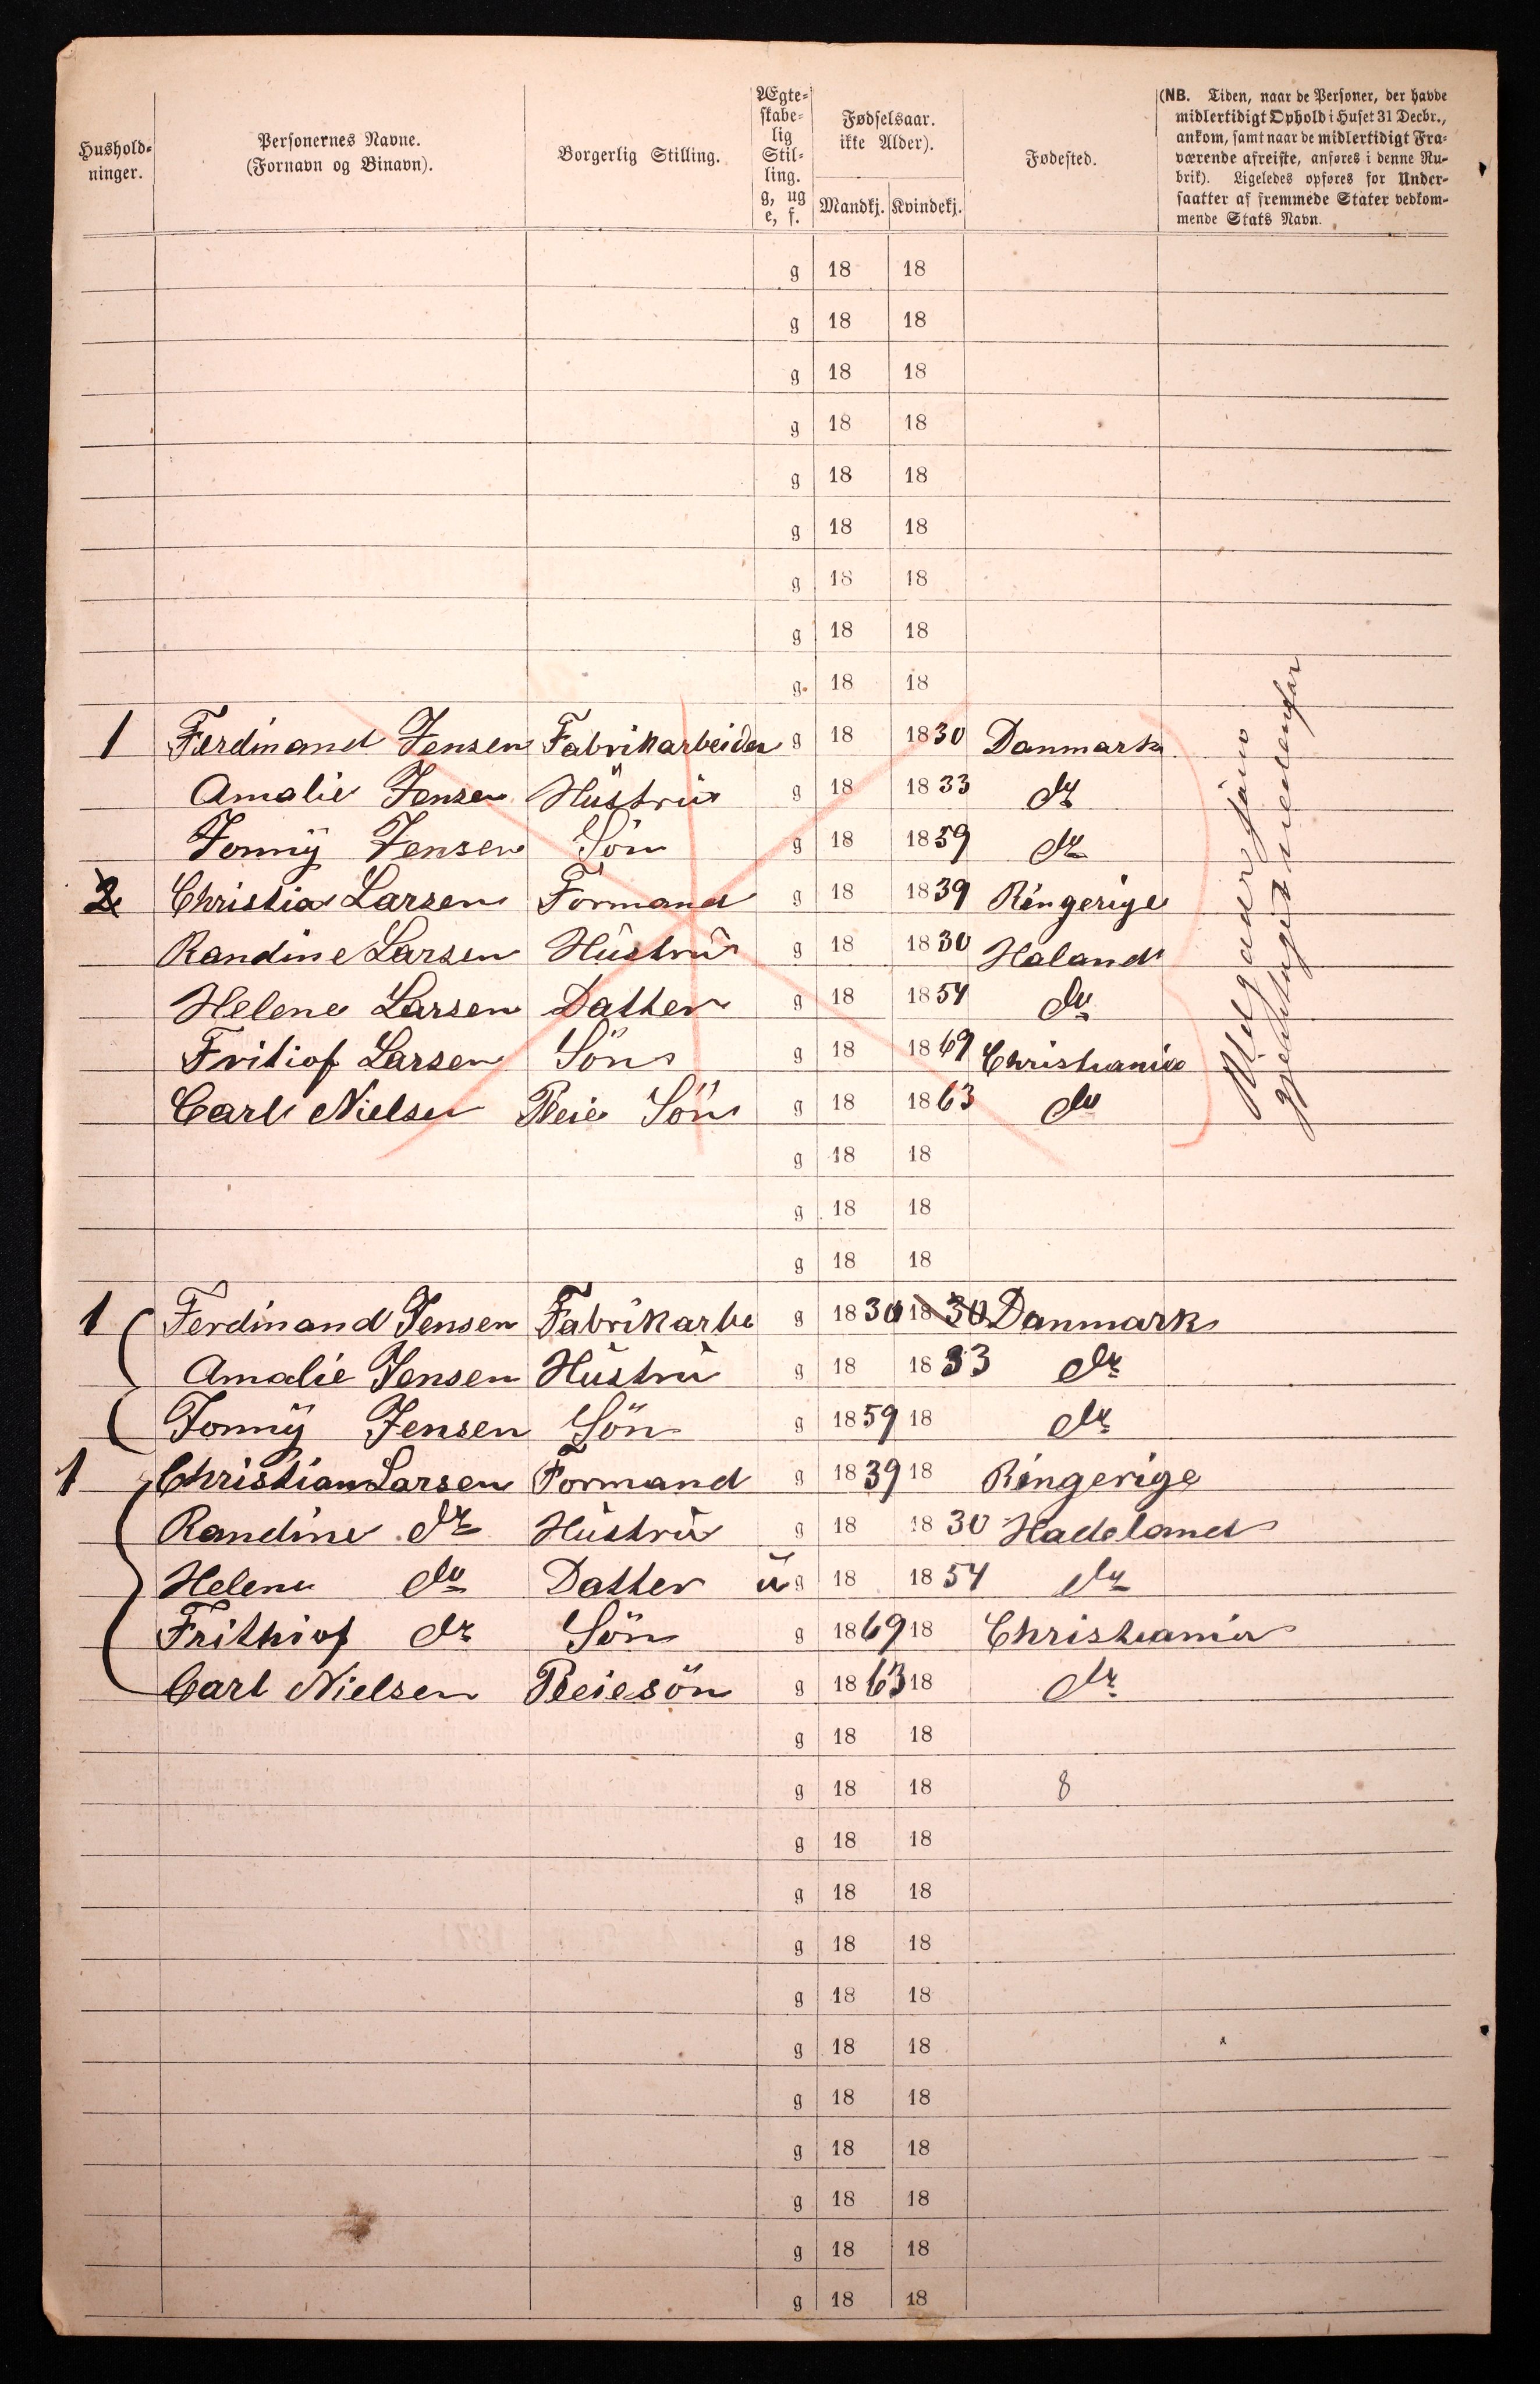 Hushold-
ninger.
Personernes Navne.
(Fornavn og Binavn).
Borgerlig Stilling.
Ægte-
skabe-
lig
Stil-
ling.
g, ug
e, f.
Fødselsaar.
ikke Alder).
Mandkj. Kvindekj.
Fødested.
(NB. Tiden, naar de Personer, der havde
midlertidigt Ophold i Huset 31 Decbr.,
ankom, samt naar de midlertidigt Fra-
værende afreiste, anføres i denne Ru-
brik). Ligeledes opføres for Under-
saatter af fremmede Stater vedkom-
mende Stats Navn.
g 18 18
g 18 18
g 18 18
g 18 18
g 18 18
g 18 18
g 18 18
g 18 18
g. 18 18
1 Ferdinand Jensen Fabrikarbeider g 18 1830 Danmark
Amalie Jensen Hüstrü g 18 1833 do
Jonny Jensen Sön g 18 1859 do
2 Christian Larsen Formand g 18 1839 Ringerige
Randine Larsen Hüstrü g 18 1830 Haland
Helene Larsen Datter g 18 1854 do
Fritiof Larsen Sön g 18 1869 Christiania
Carl Nielsen Pleie Sön g 18 1863 do
nedenfor
g 18 18
g 18 18
g 18 18
1 Ferdinand Jensen Fabrikarbe g 1830 1830 Danmark
Amalie Jensen Hüstrü g 18 1833 do
Jonny Jensen Sön g 1859 18 do
1 Christian Larsen Formand g 1839 18 Ringerige
Randine do Hüstrü g 18 1830 Hadeland
Helene do Datter ug 18 1854 do
Frithiof do Sön g 1869 18 Christiania
Carl Nielsen Pleiesön g 1863 18 do
g 18 18
g 18 18 8
g 18 18
g 18 18
g 18 18
g 18 18
g 18 18
g 18 18
g 18 18
g 18 18
g 18 18
g 18 18